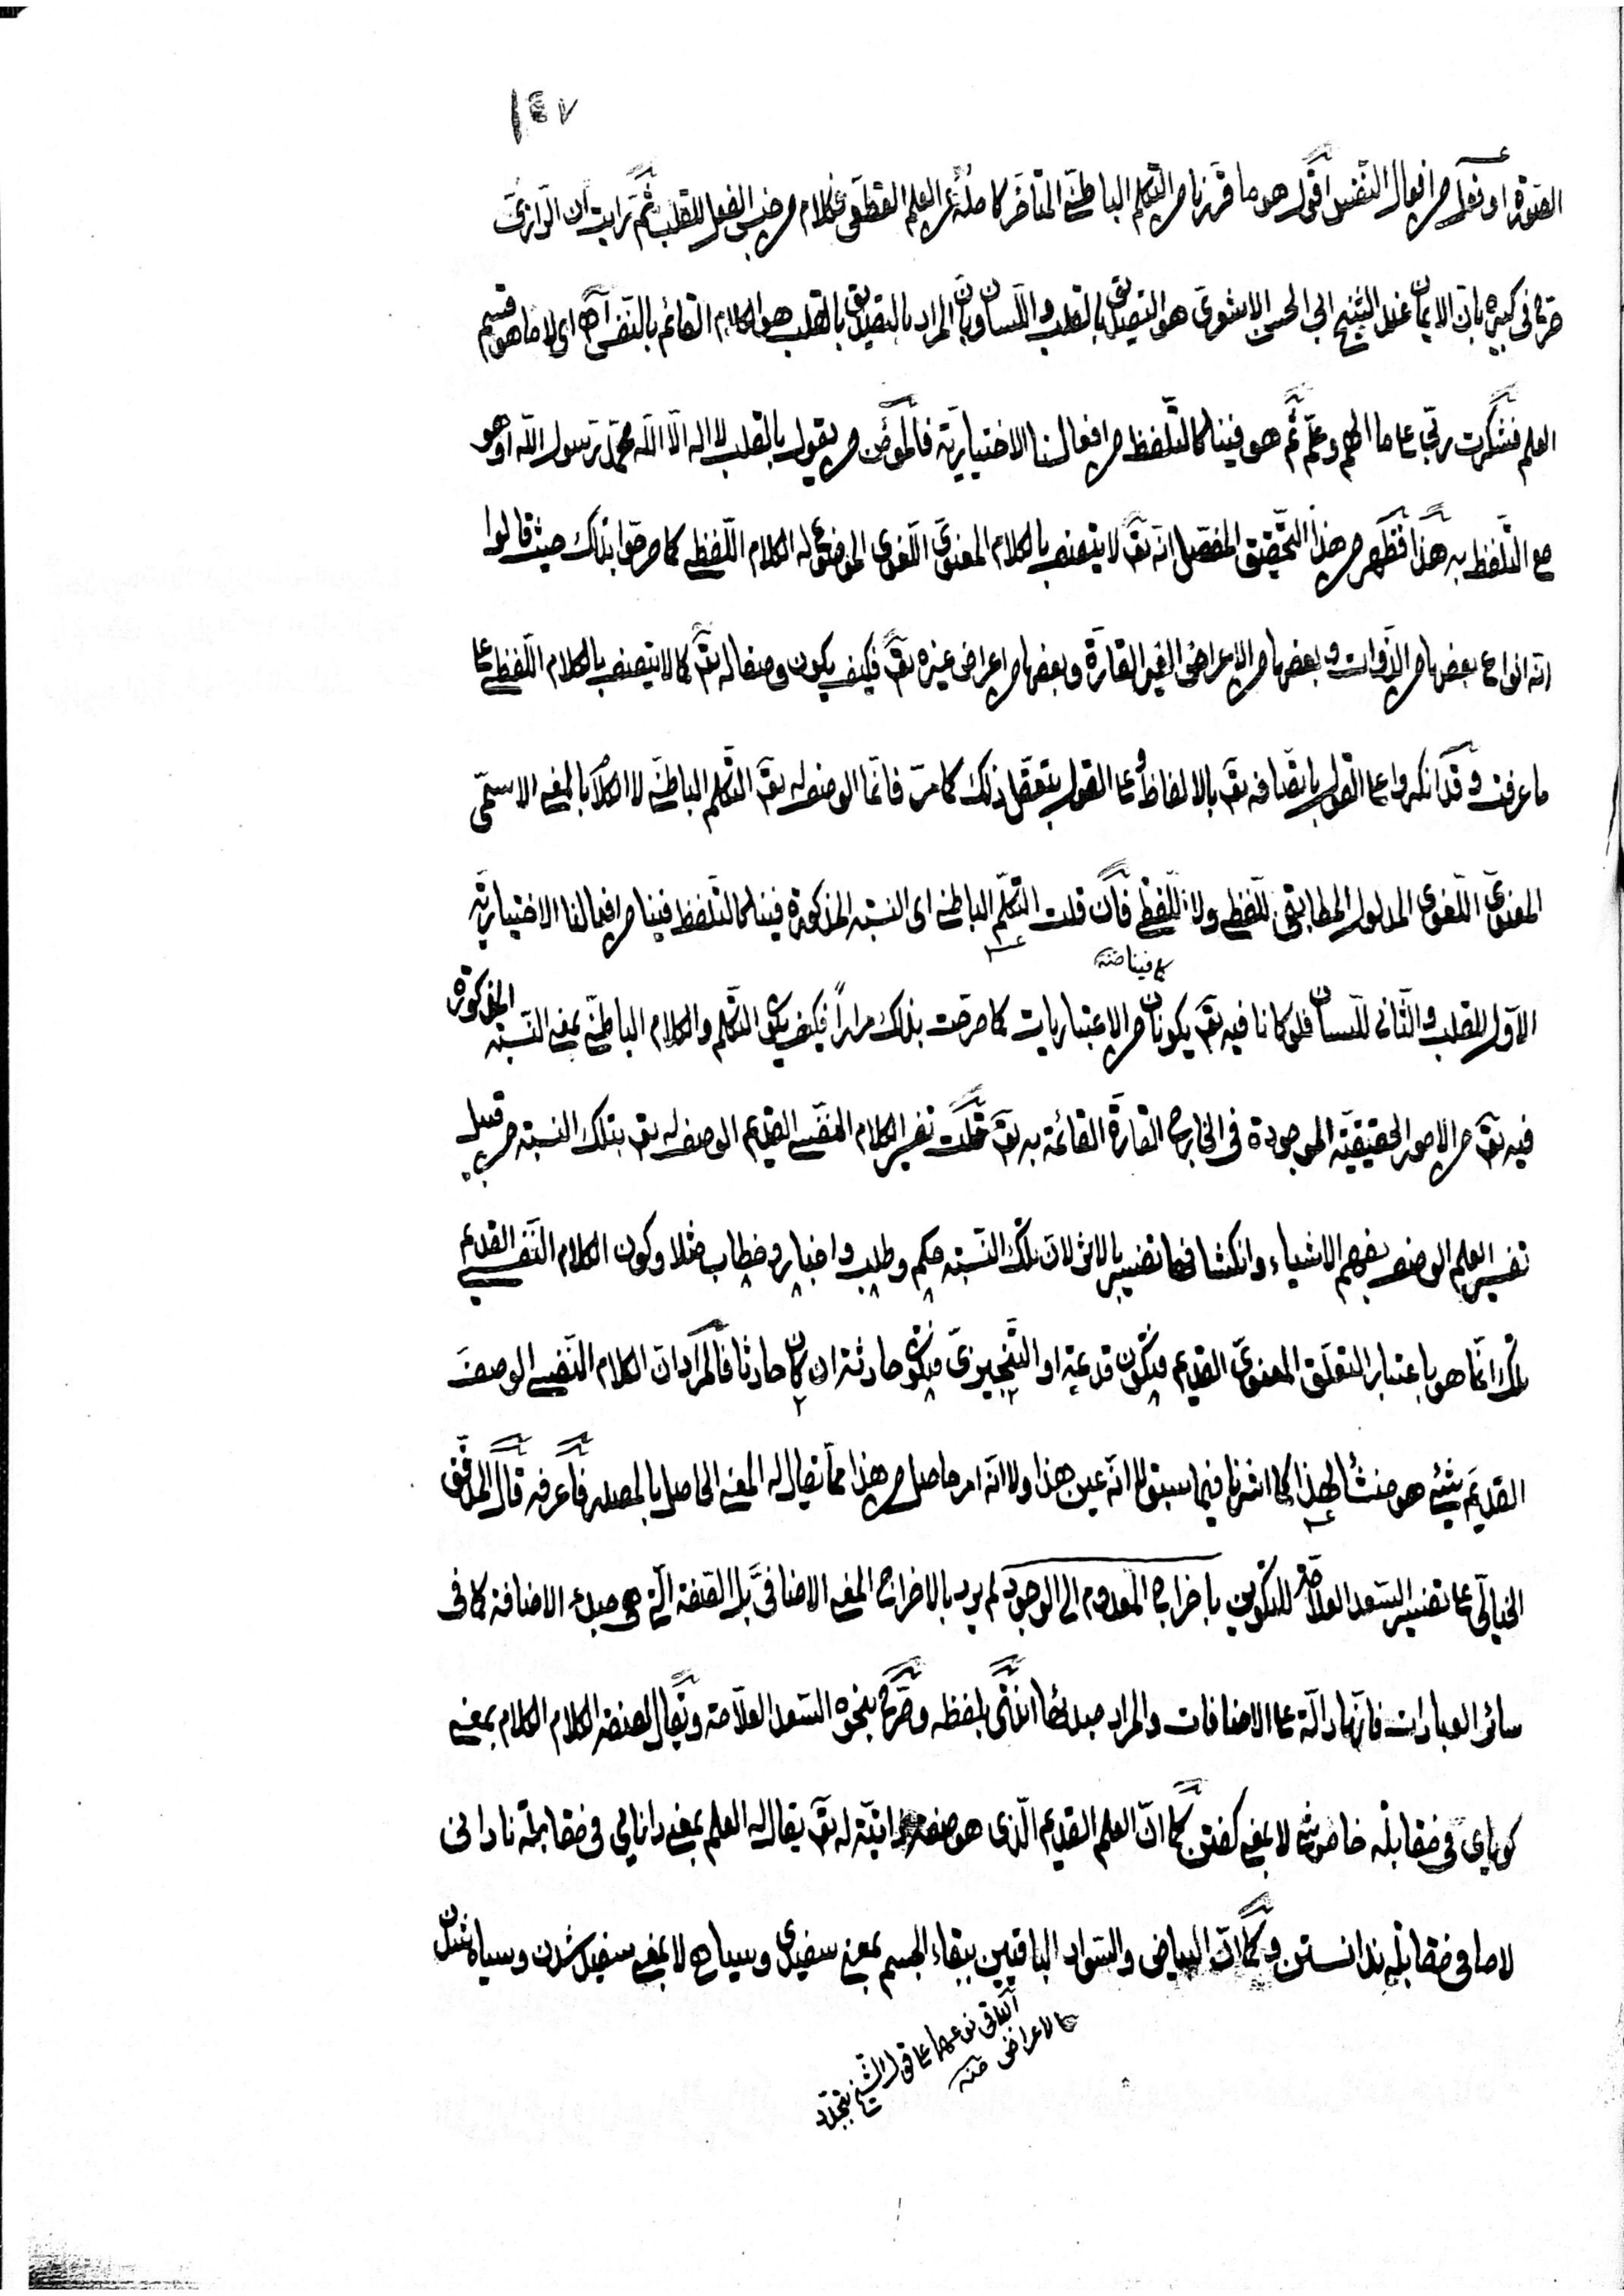 ١٤٧
الصورة او فعل من افعال النفس اقول هو ما قررنا من التكلم الباطني المتأخر كامله عن العلم القطعي فكلام من جنس الفعل للقلب ثم رايت ان الرازي
صرح في كبيره بان الايمان عند الشيخ ابي الحسن الاشعري هو التصديق بالقلب واللسان وبان المراد بالتصديق بالقلب هو الكلام القائم بالنفس آه اي لا ما هو قسم
العلم فشكرت ربي على ما الهم وعلم ثم هو فينا كالتلفظ من افعالنا الاختيارية فالمؤمن من يقول بالقلب لا اله الا الله محمد رسول الله او هو
مع التلفظ به هذا فظهر من هذا التحقيق المفصل انه تعٰ لا يتصف بالكلام المعنوي اللغوي الموضوع له الكلام اللفظي كما صرحوا بذلك حيث قالوا
انه انواع بعضها من الذوات وبعضها من الاعراض الغير القارة وبعضها من اعراض غيره تعٰ فكيف يكون وصفا له تعٰ كما لا يتصف بالكلام اللفظي على
ما عرفت وقد انكروا على القول باتصافه تعٰ بالالفاظ وعلى القول بتعقل ذلك كما مر فانما الوصف له تعٰ التكلم الباطني لا الكلام بالمعنى الاسمي
المعنوي اللغوي المدلول المطابقي للفظي ولا اللفظي فان قلت التكلم الباطني اى النسبة المذكورة فينا كالتلفظ فينا من افعالنا الاختيارية
كما فينا منه
الاول للقلب والثاني للسان فلو كانا فيه تعٰ يكونان من الاعتباريات كما صرحت بذلك مرارا فكيف يكون التكلم والكلام الباطني بمعنى النسبة المذكورة
فيه تعٰ من الامور الحقيقية الموجودة في الخارج القارة القائمة به تعٰ قلت تفسير الكلام النفسي القديم الوصف له تعٰ بتلك النسبة من قبيل
تفسير العلم الوصف بفهم الاشياء وانكشافها تفسير بالاثر لان تلك النسبة حكم وطلب واخبار وخطاب مثلا وكون الكلام النفسي القديم
تلك انما هو باعتبار التعلق المعنوي القديم فتكون قديمة او التنجيزي فتكون حادثة ان كان حادثا فالمراد ان الكلام النفسي الوصف
القديم شيئ هو منشأ لهذا كما اشرنا فيما سبق لا انه عين هذا ولا انه امر حاصل من هذا مما يقال له المعنى الحاصل بالمصدر فاعرفه قال المدقق
الخيالي على تفسير السعد العلامة للتكوين باخراج المعدوم الى الوجود لم يرد بالاخراج المعنى الاضافي بل الصفة التي هي مبدء الاضافة كما في
سائر العبارات فانها دالة على الاضافات والمراد مبدئها انتهى بلفظه وصرح بنحوه السعد العلامة ويقال لصفة الكلام الكلام بمعنى
كوياي في مقابلة خاموشي لا بمعنى كفتن كما ان العلم القديم الذي هو صفة ذاتية له تعٰ يقال له العلم بمعنى دانايي في مقابلة ناداني
لا ما في مقابلة ندانستن وكما ان البياض والسواد الباقيين ببقاء الجسم بمعنى سفيدي وسياهي لا بمعنى سفيد شدن وسياه شدن
الباقي نوعهما على قول الشيخ بتجدد
الاعراض منه